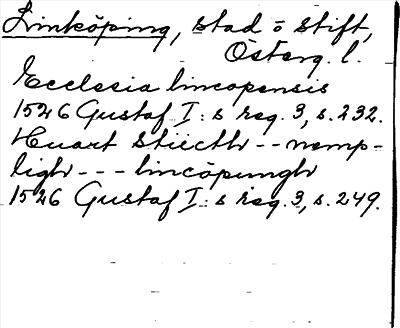 Linköping, stad o stift,
Österg. l.
Ecclesia lincopensis
1526 Gustaf I:s reg. 3, s. 232.
Huart Sticth -- nemp-
ligh --- lincöpungh
1526 Gustaf I:s reg. 3, s. 249.